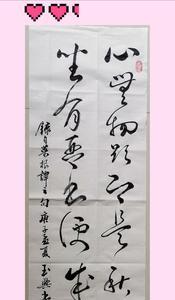 心無物欲即是秋
坐有琴書便成
錄自菜根譚之句庚子孟夏玉